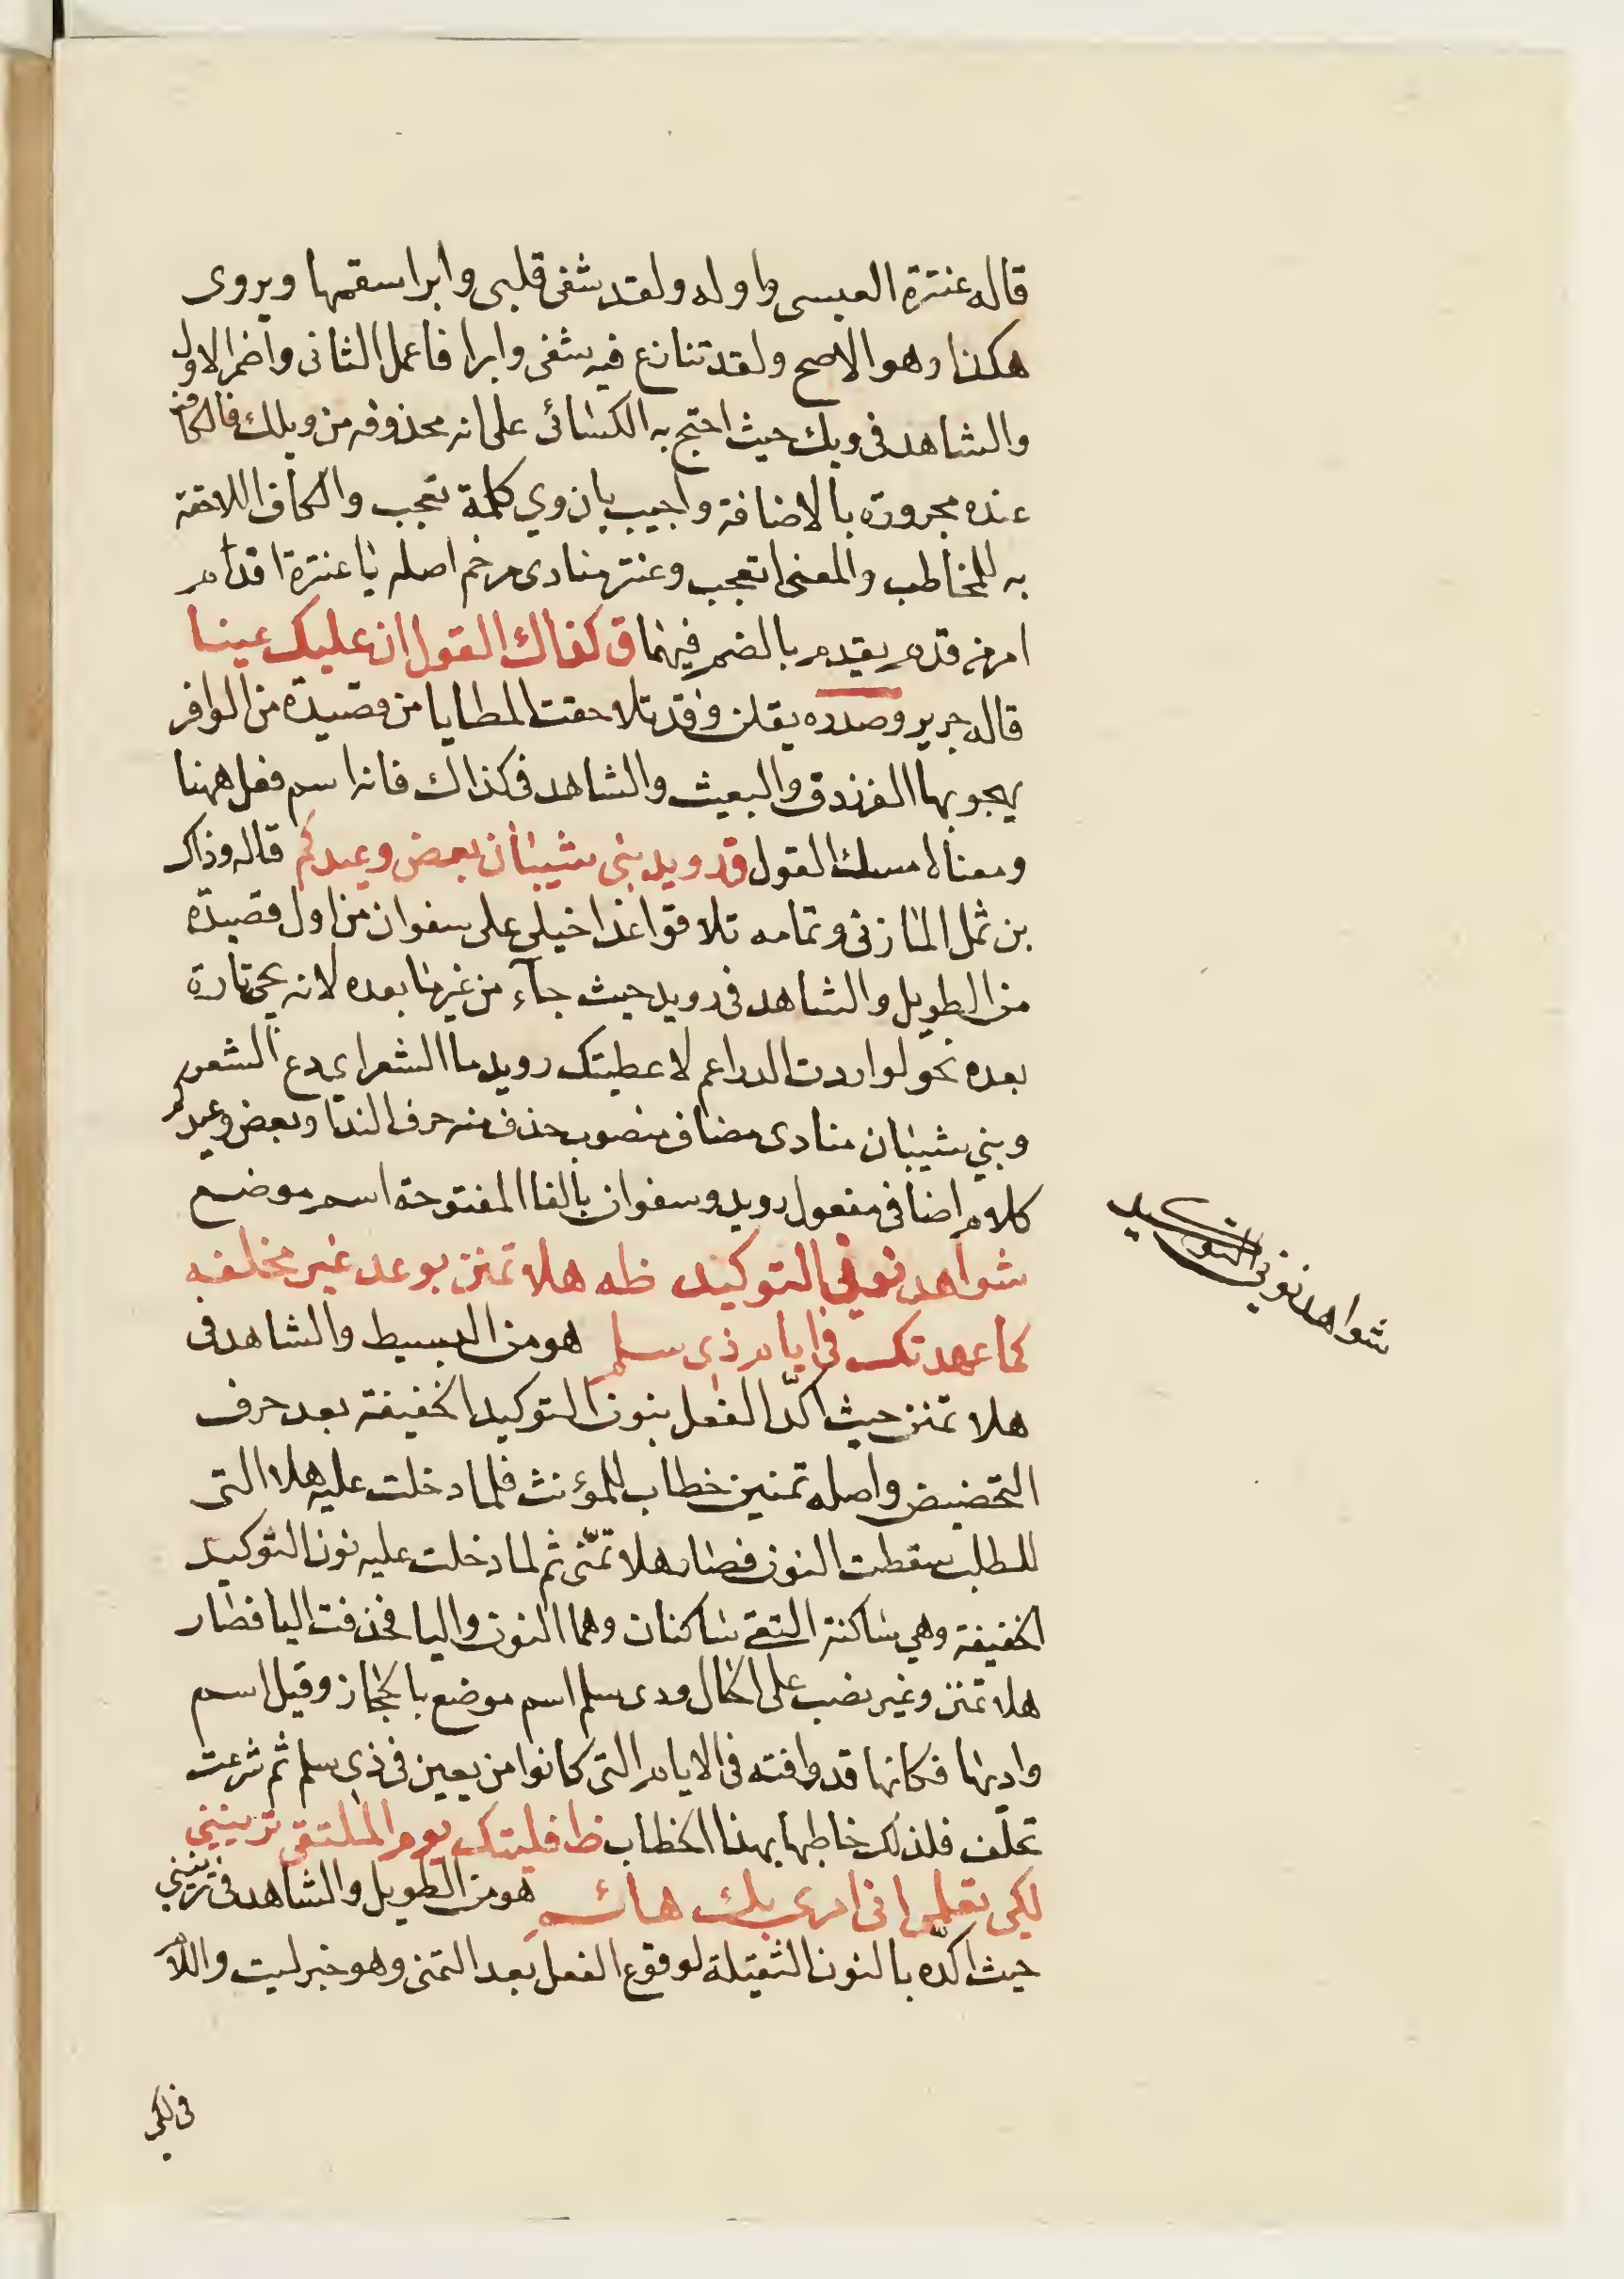 قاله عنترة العبسى واوله ولقد شفى قلبى وابرا سقمها ويروى
هكذا وهو الاصح ولقد تنازع فيه شفى وابرا فاعمل الثانى واضمر الاول
والشاهد فى ويك حيث احتج به الكسائى على انه محذوفه من ويلك فالكاف
عنده مجرورة بالاضافة واجيب بان وي كلمة تعجب والكاف اللاحقة
به للمخاطب والمعنى اتعجب وعنتر منادى مرخم اصله يا عنترة اقدام
امر من قدم يقدم بالضم فيهما ق كفاك القول ان عليك عينا
قاله جرير وصدره يقلن وقد تلاحقت المطايا من قصيدة من الوافر
يهجو بها الفرزدق والبعيث والشاهد فى كذاك فانه اسم فعل ههنا
ومعناه امسك القول ق رويد بنى شيبان بعض وعيدكم قاله وذاك
بن ثمل المازنى وتمامه تلاقوا غدا خيلى على سفوان من اول قصيدة
من الطويل والشاهد فى رويد حيث جآء من غير ما بعده لانه يجى تارة
بعده نحو لو اردت الدراهم لاعطيتك رويد ما الشعر اى دع الشعر
وبني شيبان منادى مضاف منصوب حذف منه حرف الندا وبعض وعيدكم
كلام اضافى مفعول رويد وسفوان بالفا المفتوحة اسم موضع
شواهد نونى التوكيد ظه هلا تمنن بوعد غير مخلفه
كما عهدتك فى ايام ذى سلم هو من البسيط والشاهد فى
هلا تمنن حيث اكّد الفعل بنون التوكيد الخفيفة بعد حرف
التحضيض واصله تمنين خطاب للمؤنث فلما دخلت عليه هلا التى
للطلب سقطت النون فصار هلا تمنّى ثم لما دخلت عليه نون التوكيد
الخفيفة وهي ساكنة التقى ساكنان وهما النون واليا فحذفت اليا فصار
هلا تمنن وغير نصب على الحال وذى سلم اسم موضع بالحجاز وقيل اسم
واد بها فكانها قد وافته فى الايام التى كانوا مربعين فى ذى سلم ثم شرعت
تخلّف فلذلك خاطبها بهذا الخطاب ظ فليتك يوم الملتقى ترينني
لكى تعلمى انى امرى بك هائم هو من الطويل والشاهد فى ترينني
حيث اكّده بالنون الثقيلة لوقوع الفعل بعد التمنى وهو خبر ليت واللام
فى لكى
شواهد نونى التوكيد